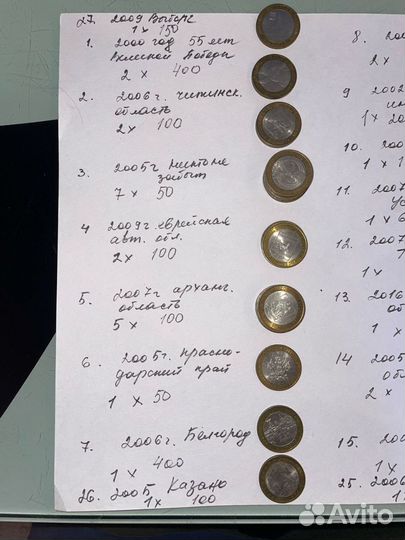 27. 2009 Выборг
1 x 150
1. 2000 год 55 лет
Великой Победы
2 x 400
2. 2006 г. Читинск.
область
2 x 100
3. 2005 г никто не
забыт
7 x 50
4 2009 г. Еврейская
авт. обл.
2 x 100
5. 2007 г арханг.
область
5 x 100
6. 2005 г. Красно-
дарский край
1 x 50
7. 2006 г. Белгород
1 x 400
26. 2005 Казань
1 x 100
8.
2 x
9 2002
1 x
10. 200
1 x 1
11. 2007
1 x 6
12. 2007
1 x
13. 2016
об
1 x
14 2005
обл
2 x
15.
1 x
25. 2006
1
Avito